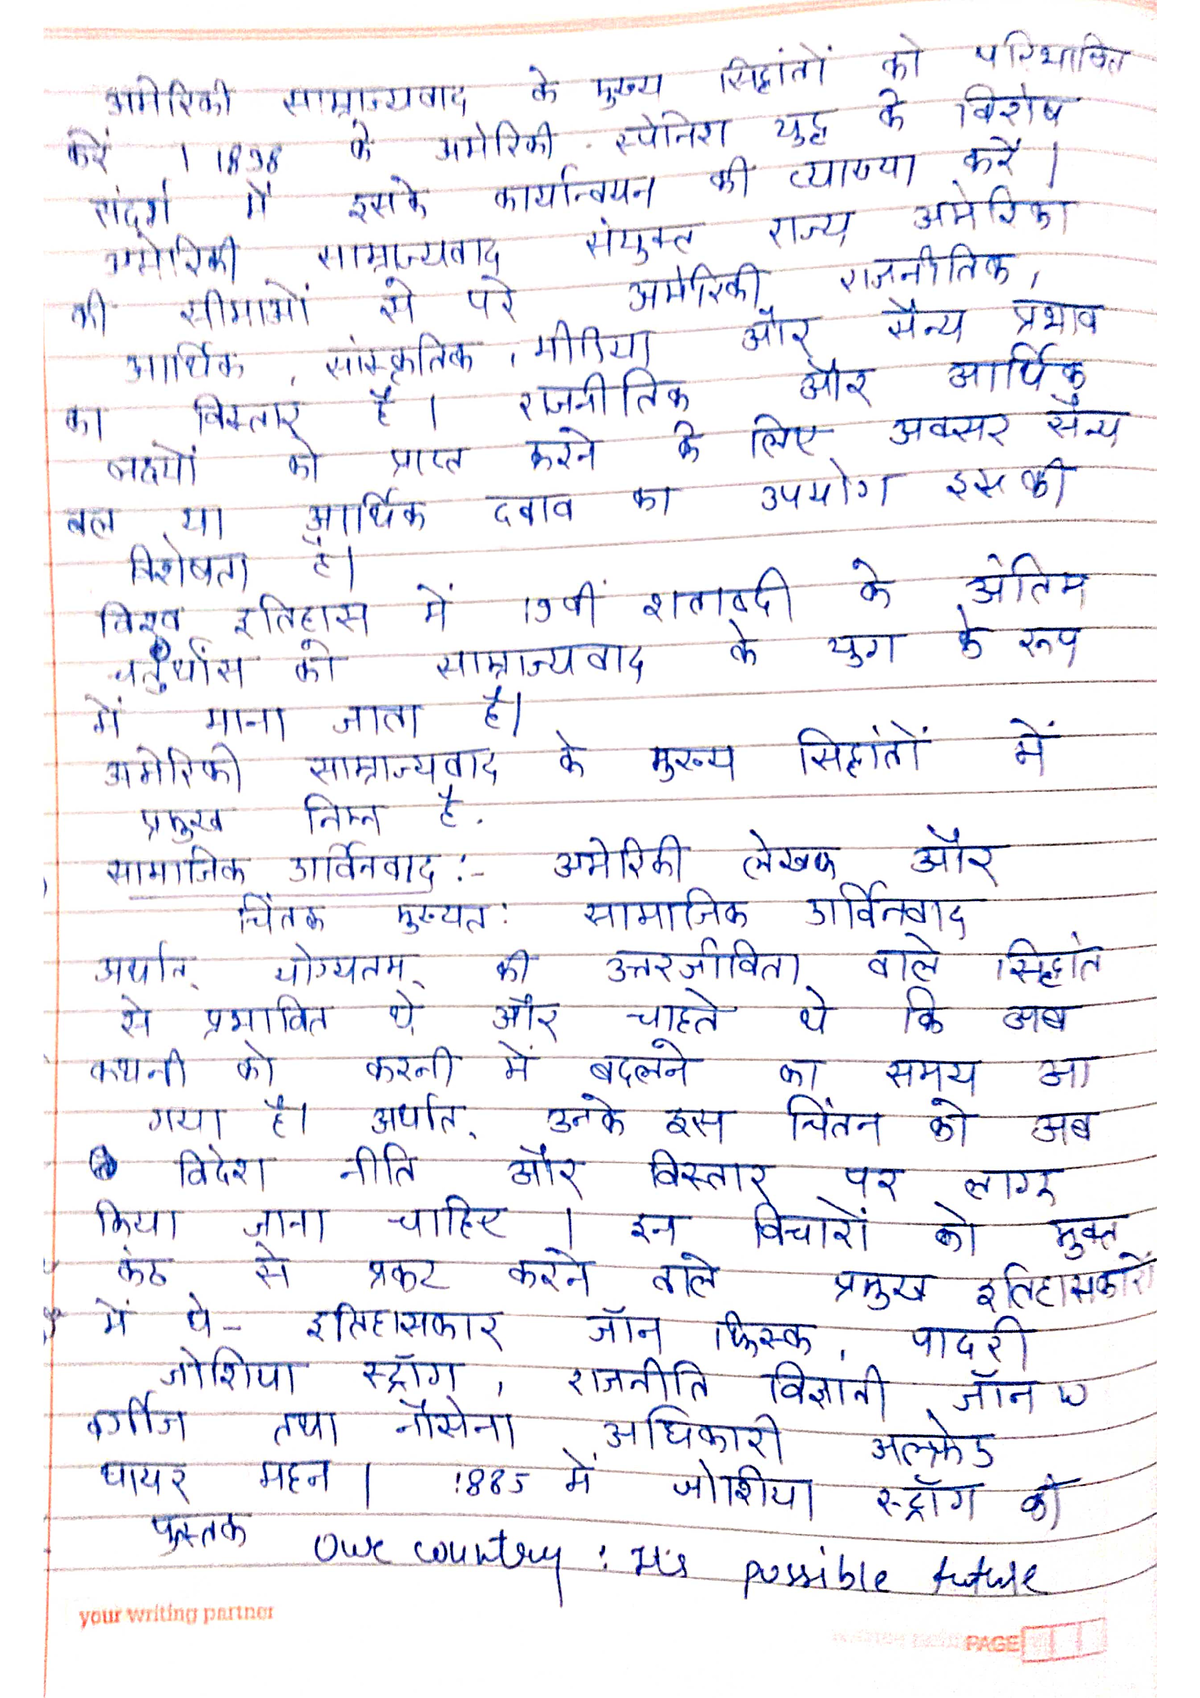 अमेरिकी साम्राज्यवाद के मुख्य सिद्धांतों को परिभाषित
करें । 1898 के अमेरिकी - स्पेनिश युद्ध के विशेष
संदर्भ में इसके कार्यान्वयन की व्याख्या करें ।
अमेरिकी साम्राज्यवाद संयुक्त राज्य अमेरिका
की सीमाओं से परे अमेरिकी राजनीतिक,
आर्थिक, सांस्कृतिक, मीडिया और सैन्य प्रभाव
का विस्तार है । राजनीतिक और आर्थिक
लक्ष्यों को प्राप्त करने के लिए अक्सर सैन्य
बल या आर्थिक दबाव का उपयोग इसकी
विशेषता है।
विश्व इतिहास में 19वीं शताब्दी के अंतिम
चतुर्थांस को साम्राज्यवाद के युग के रूप
में माना जाता है।
अमेरिकी साम्राज्यवाद के मुख्य सिद्धांतों में
प्रमुख निम्न है.
सामाजिक डार्विनवाद :- अमेरिकी लेखक और
चिंतक मुख्यत: सामाजिक डार्विनवाद
अर्थात् योग्यतम् की उत्तरजीविता वाले सिद्धांत
से प्रभावित थे और चाहते थे कि अब
कथनी को करनी में बदलने का समय आ
गया है। अर्थात् उनके इस चिंतन को अब
विदेश नीति और विस्तार पर लागू
किया जाना चाहिए । इन विचारों को मुक्त
कंठ से प्रकट करने वाले प्रमुख इतिहासकारों
में थे - इतिहासकार जॉन फिस्क, पादरी
जोशिया स्ट्रॉग, राजनीति विज्ञानी जॉन W
वर्गीज तथा नौसेना अधिकारी अल्फ्रेड
थायर महन । 1885 में जोशिया स्ट्रॉग की
पुस्तक Our country : Its possible future
your writing partner
PAGE